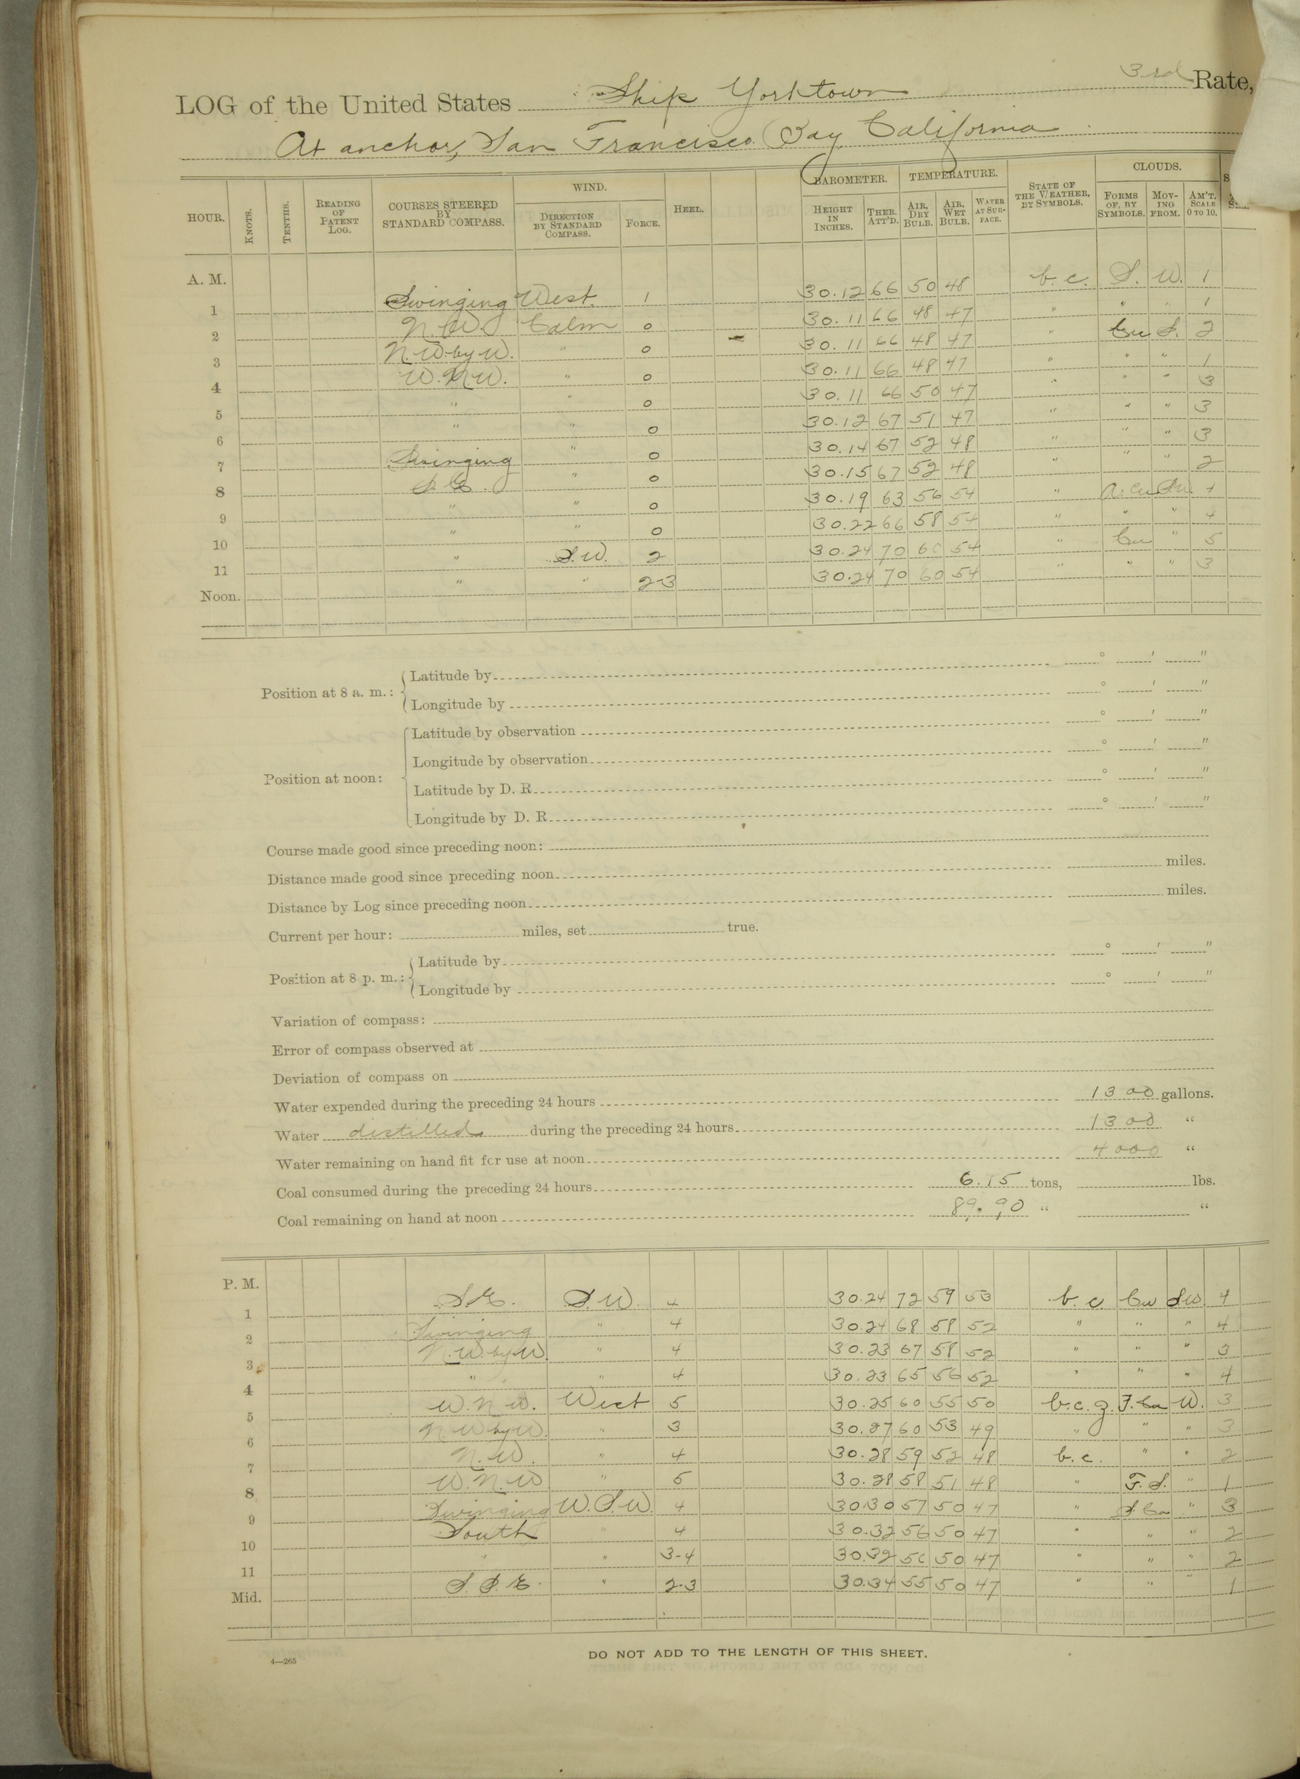 3rd Rate,
LOG of the United States Ship Yorktown
At anchor, San Francisco Bay California
HOUR. KNOTS. TENTHS. READING OF PATENT LOG. COURSES STEERED BY STANDARD COMPASS. WIND. DIRECTION BY STANDARD COMPASS. FORCE. HEEL. BAROMETER. HEIGHT IN INCHES. THER. ATT'D. TEMPERATURE. AIR, DRY BULB. AIR, WET BULB. WATER AT SURFACE. STATE OF THE WEATHER, BY SYMBOLS. CLOUDS. FORMS OF, BY SYMBOLS. MOVING FROM. AM'T, SCALE 0 TO 10.
A. M.
1 Swinging West 1 30.12 66 50 48 b.c. S. W. 1
2 N.W. Calm 0 30.11 66 48 47 " " " 1
3 N.W. by W. " 0 30.11 66 48 47 " Cu S. 2
4 W.N.W. " 0 30.11 66 48 47 " " " 1
5 " " 0 30.11 66 50 47 " " " 3
6 " " 0 30.12 67 51 47 " " " 3
7 Swinging " 0 30.14 67 52 48 " " " 3
8 S.E. " 0 30.15 67 52 48 " " " 2
9 " " 0 30.19 63 56 54 " A.Cu S.W. 4
10 " " 0 30.22 66 58 54 " " " 4
11 " S.W. 2 30.24 70 60 54 " Cu " 5
Noon. " " 2-3 30.24 70 60 54 " " " 3
Position at 8 a. m.: Latitude by ° ′ ″
Longitude by ° ′ ″
Position at noon: Latitude by observation ° ′ ″
Longitude by observation ° ′ ″
Latitude by D. R. ° ′ ″
Longitude by D. R. ° ′ ″
Course made good since preceding noon:
Distance made good since preceding noon miles.
Distance by Log since preceding noon miles.
Current per hour: miles, set true.
Position at 8 p. m.: Latitude by ° ′ ″
Longitude by ° ′ ″
Variation of compass:
Error of compass observed at
Deviation of compass on
Water expended during the preceding 24 hours 1300 gallons.
Water distilled during the preceding 24 hours 1300 "
Water remaining on hand fit for use at noon 4000 "
Coal consumed during the preceding 24 hours 6.15 tons, lbs.
Coal remaining on hand at noon 89.90 " "
P. M.
1 S.E. S.W. 4 30.24 72 59 53 b.c. Cu S.W. 4
2 Swinging " 4 30.24 68 58 52 " " " 4
3 N.W. by W. " 4 30.23 67 58 52 " " " 3
4 " " 4 30.23 65 56 52 " " " 4
5 W.N.W. West 5 30.25 60 55 50 b.c.g. F.Cu W. 3
6 N.W. by W. " 3 30.27 60 53 49 " " " 3
7 N.W. " 4 30.28 59 52 48 b.c. " " 2
8 W.N.W " 5 30.28 58 51 48 " F.S. " 1
9 Swinging W.S.W. 4 30.30 57 50 47 " S Cu " 3
10 South " 4 30.32 56 50 47 " " " 2
11 " " 3-4 30.32 56 50 47 " " " 2
Mid. S.S.E. " 2-3 30.34 55 50 47 " " " 1
DO NOT ADD TO THE LENGTH OF THIS SHEET.
4—265